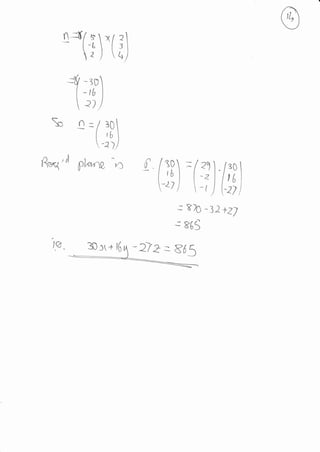 14
n = (5 -6 2) × (2 3 4)
= (-30 -16 27)
So n = (30 16 -27)
Req'd plane is r. (30 16 -27) = (29 -2 -1) . (30 16 -27)
= 870 - 32 + 27
= 865
ie. 30x + 16y - 27z = 865